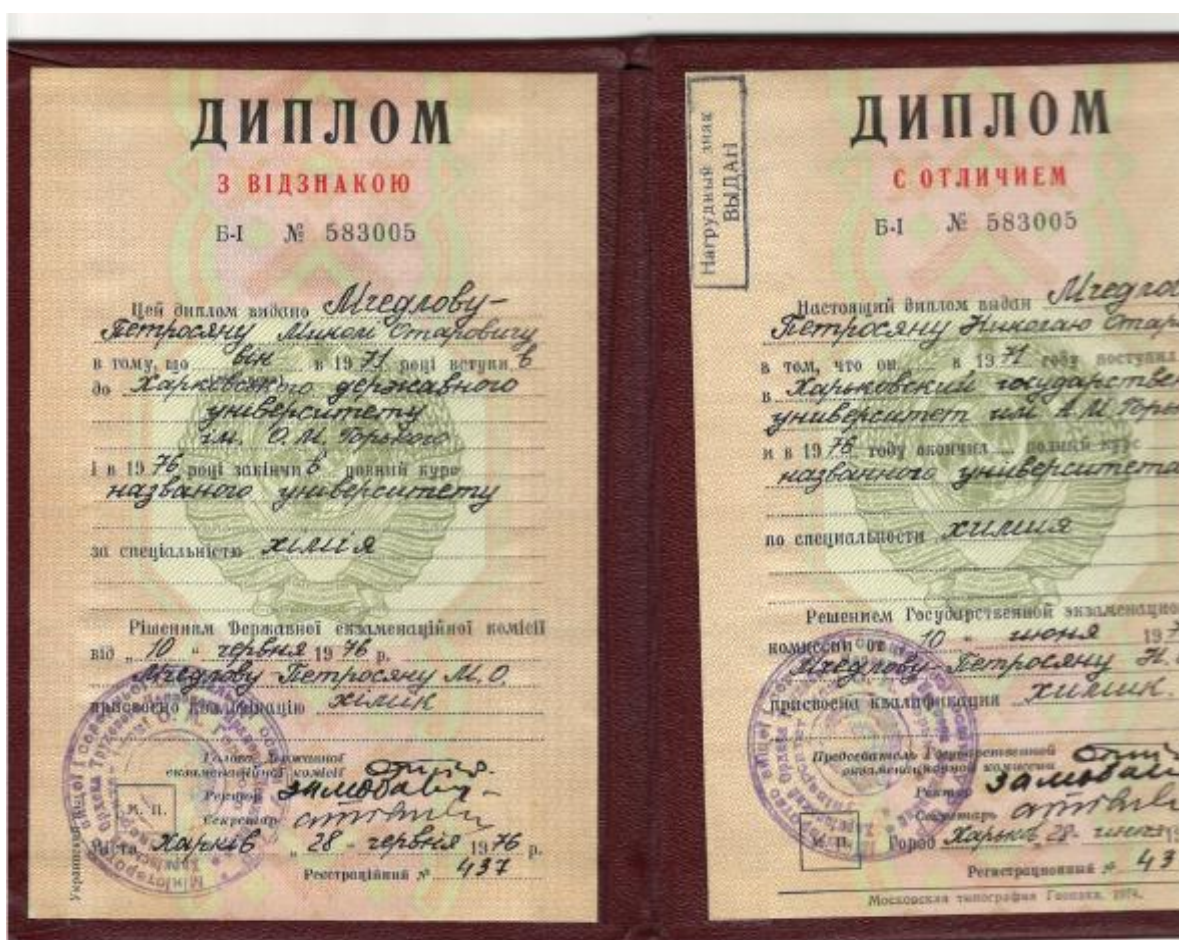 ДИПЛОМ
З ВІДЗНАКОЮ
Б-I № 583005
Цей диплом видано Мчедлову-
Петросяну Миколі Отаровичу
в тому, що він в 1971 році вступив
до Харківського державного
університету
ім. О.М. Горького
і в 1976 році закінчив повний курс
названого університету
за спеціальністю хімія
Рішенням Державної екзаменаційної комісії
від „10“ червня 1976 р.
Мчедлову-Петросяну М.О.
присвоєно кваліфікацію хімик
Голова Державної
екзаменаційної комісії
Ректор
Секретар
М. П.
Місто Харків „28“ червня 1976 р.
Реєстраційний № 437
Нагрудный знак
ВЫДАН
ДИПЛОМ
С ОТЛИЧИЕМ
Б-I № 583005
Настоящий диплом выдан
Петросяну Николаю
в том, что он в 1971 году поступил
в Харьковский
университет им А.М.
и в 1976 году окончил полный курс
названного университета
по специальности химия
Решением Государственной
комиссии от „10“ июня
Мчедлову-Петросяну Н.
присвоена квалификация химик.
Председатель Государственной
экзаменационной комиссии
Ректор
Секретарь
М. П.
Город Харьков „28“ июня
Регистрационный №
Московская типография Гознака. 1974.